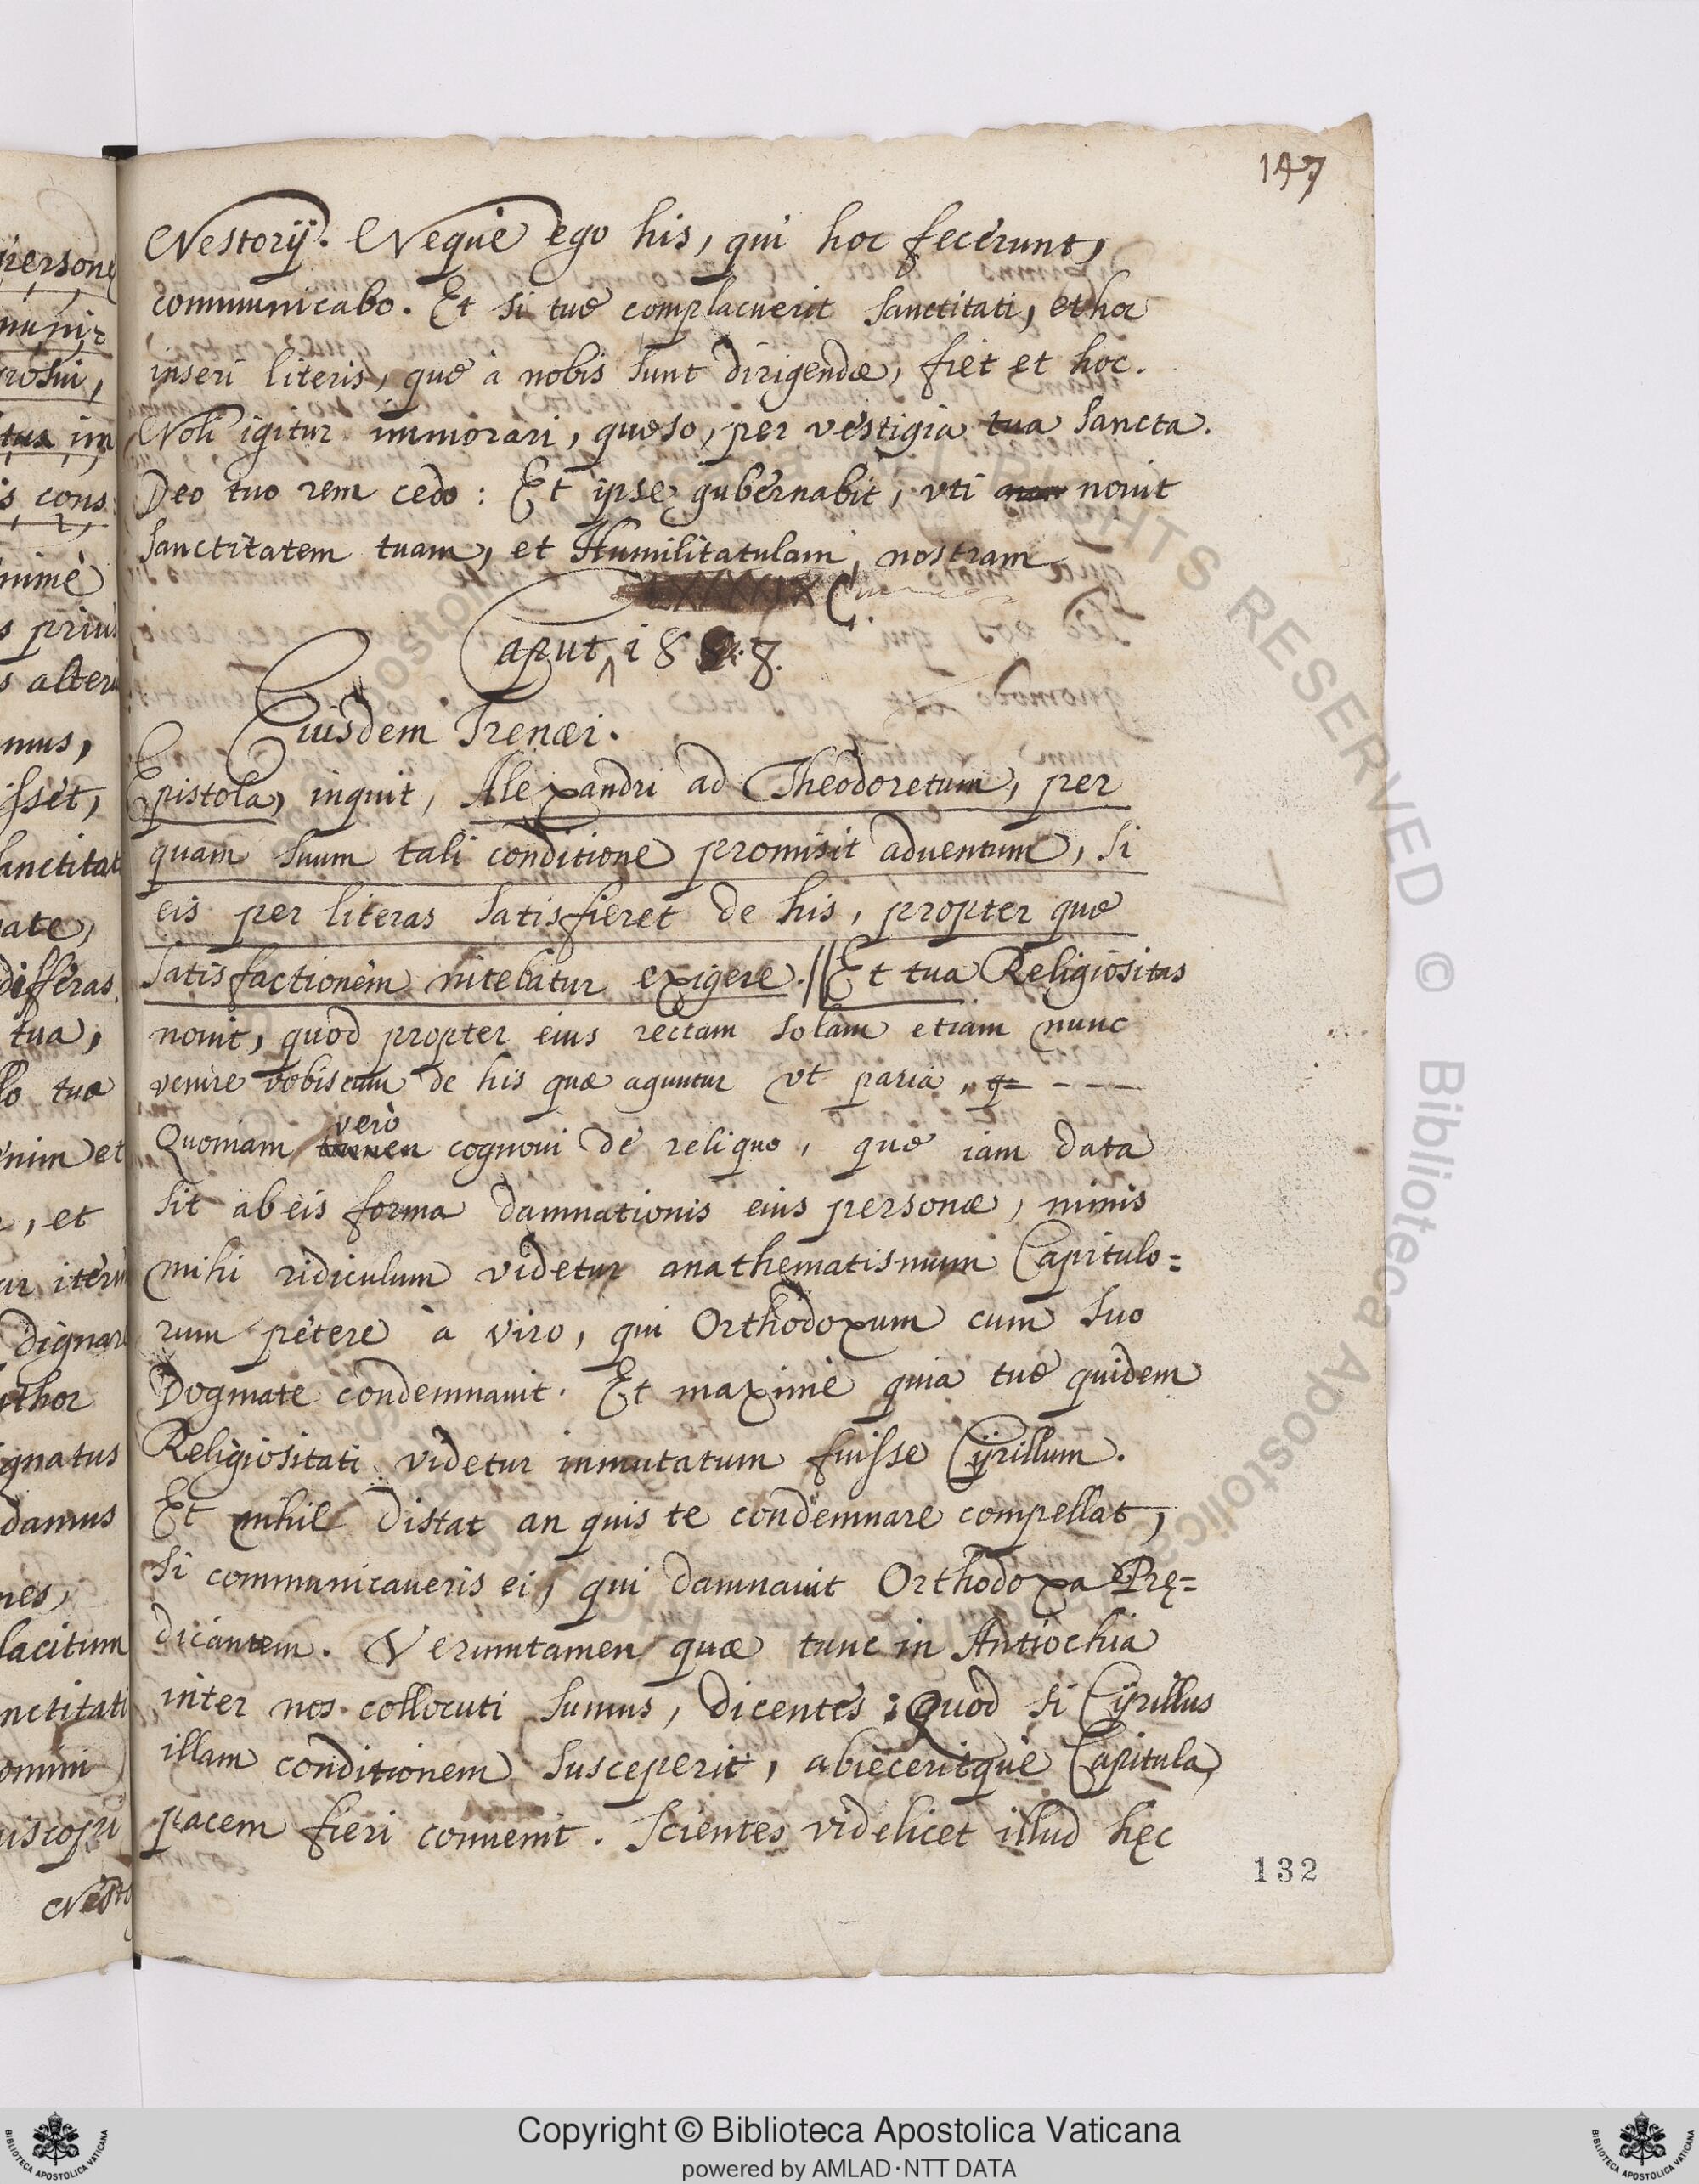 147
Nestorÿ. Neque ego his, qui hoc fecerunt,
communicabo. Et si tuę complacuerit sanctitati, et hoc
inseri literis, quę à nobis sunt dirigendæ, fiet et hoc.
Noli igitur immorari, quęso, per vestigia tua sancta.
Deo tuo rem cedo: Et ipse gubernabit, vti nouit
sanctitatem tuam, et Humilitatulam nostram
Caput 188.
Eiusdem Irenæi.
Epistola, inquit, Alexandri ad Theodoretum, per
quam suum tali conditione promisit aduentum, si
eis per literas satisfieret de his, propter quę
satisfactionem nitebatur exigere. // Et tua Religiositas
nouit, quod propter eius rectam solam etiam nunc
venire vobiscum de his quæ aguntur vt paria, - - - -
vero
Quoniam tamen cognoui de reliquo, quę iam data
sit ab eis forma damnationis eius personæ, nimis
mihi ridiculum videtur anathematismum Capitulo=
rum petere à viro, qui Orthodoxum cum suo
Dogmate condemnauit. Et maxime quia tuę quidem
Religiositati videtur inmutatum fuisse Cÿrillum.
Et nihil distat an quis te condemnare compellat,
si communicaueris ei, qui damnauit Orthodoxa Prę=
dicantem. Verumtamen quæ tunc in Antiochia
inter nos collocuti sumus, dicentes: Quod si Cÿrillus
illam conditionem susceperit, abieceritque Capitula,
pacem fieri conuenit. Scientes videlicet illud hęc
132
personę
s cons
s priu
mus,
isset,
sanctitat
differas
tua,
lo tuo
nim et
, et
ur iteru
dignar
gnatus
damus
nes,
lacitum
nctitati
omini
iscopi
Nesto
ALL RIGHTS RESERVED © Biblioteca Apostolica Vaticana
Copyright © Biblioteca Apostolica Vaticana
powered by AMLAD·NTT DATA
BIBLIOTECA APOSTOLICA VATICANA
BIBLIOTECA APOSTOLICA VATICANA